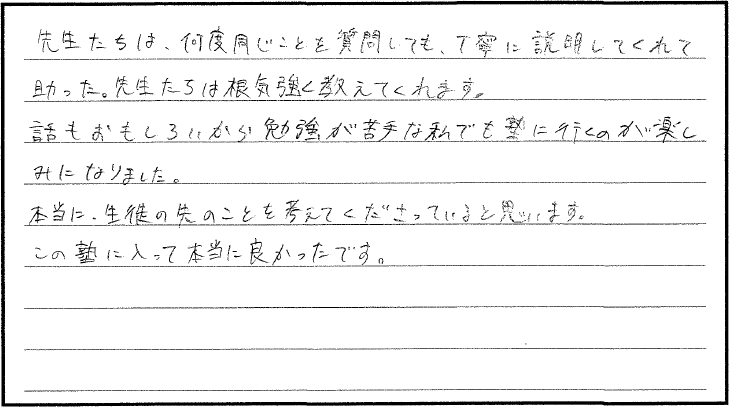 先生たちは、何度同じことを質問しても、丁寧に説明してくれて
助った。先生たちは根気強く教えてくれます。
話もおもしろいから勉強が苦手な私でも塾に行くのが楽し
みになりました。
本当に、生徒の先のことを考えてくださっていると思います。
この塾に入って本当に良かったです。